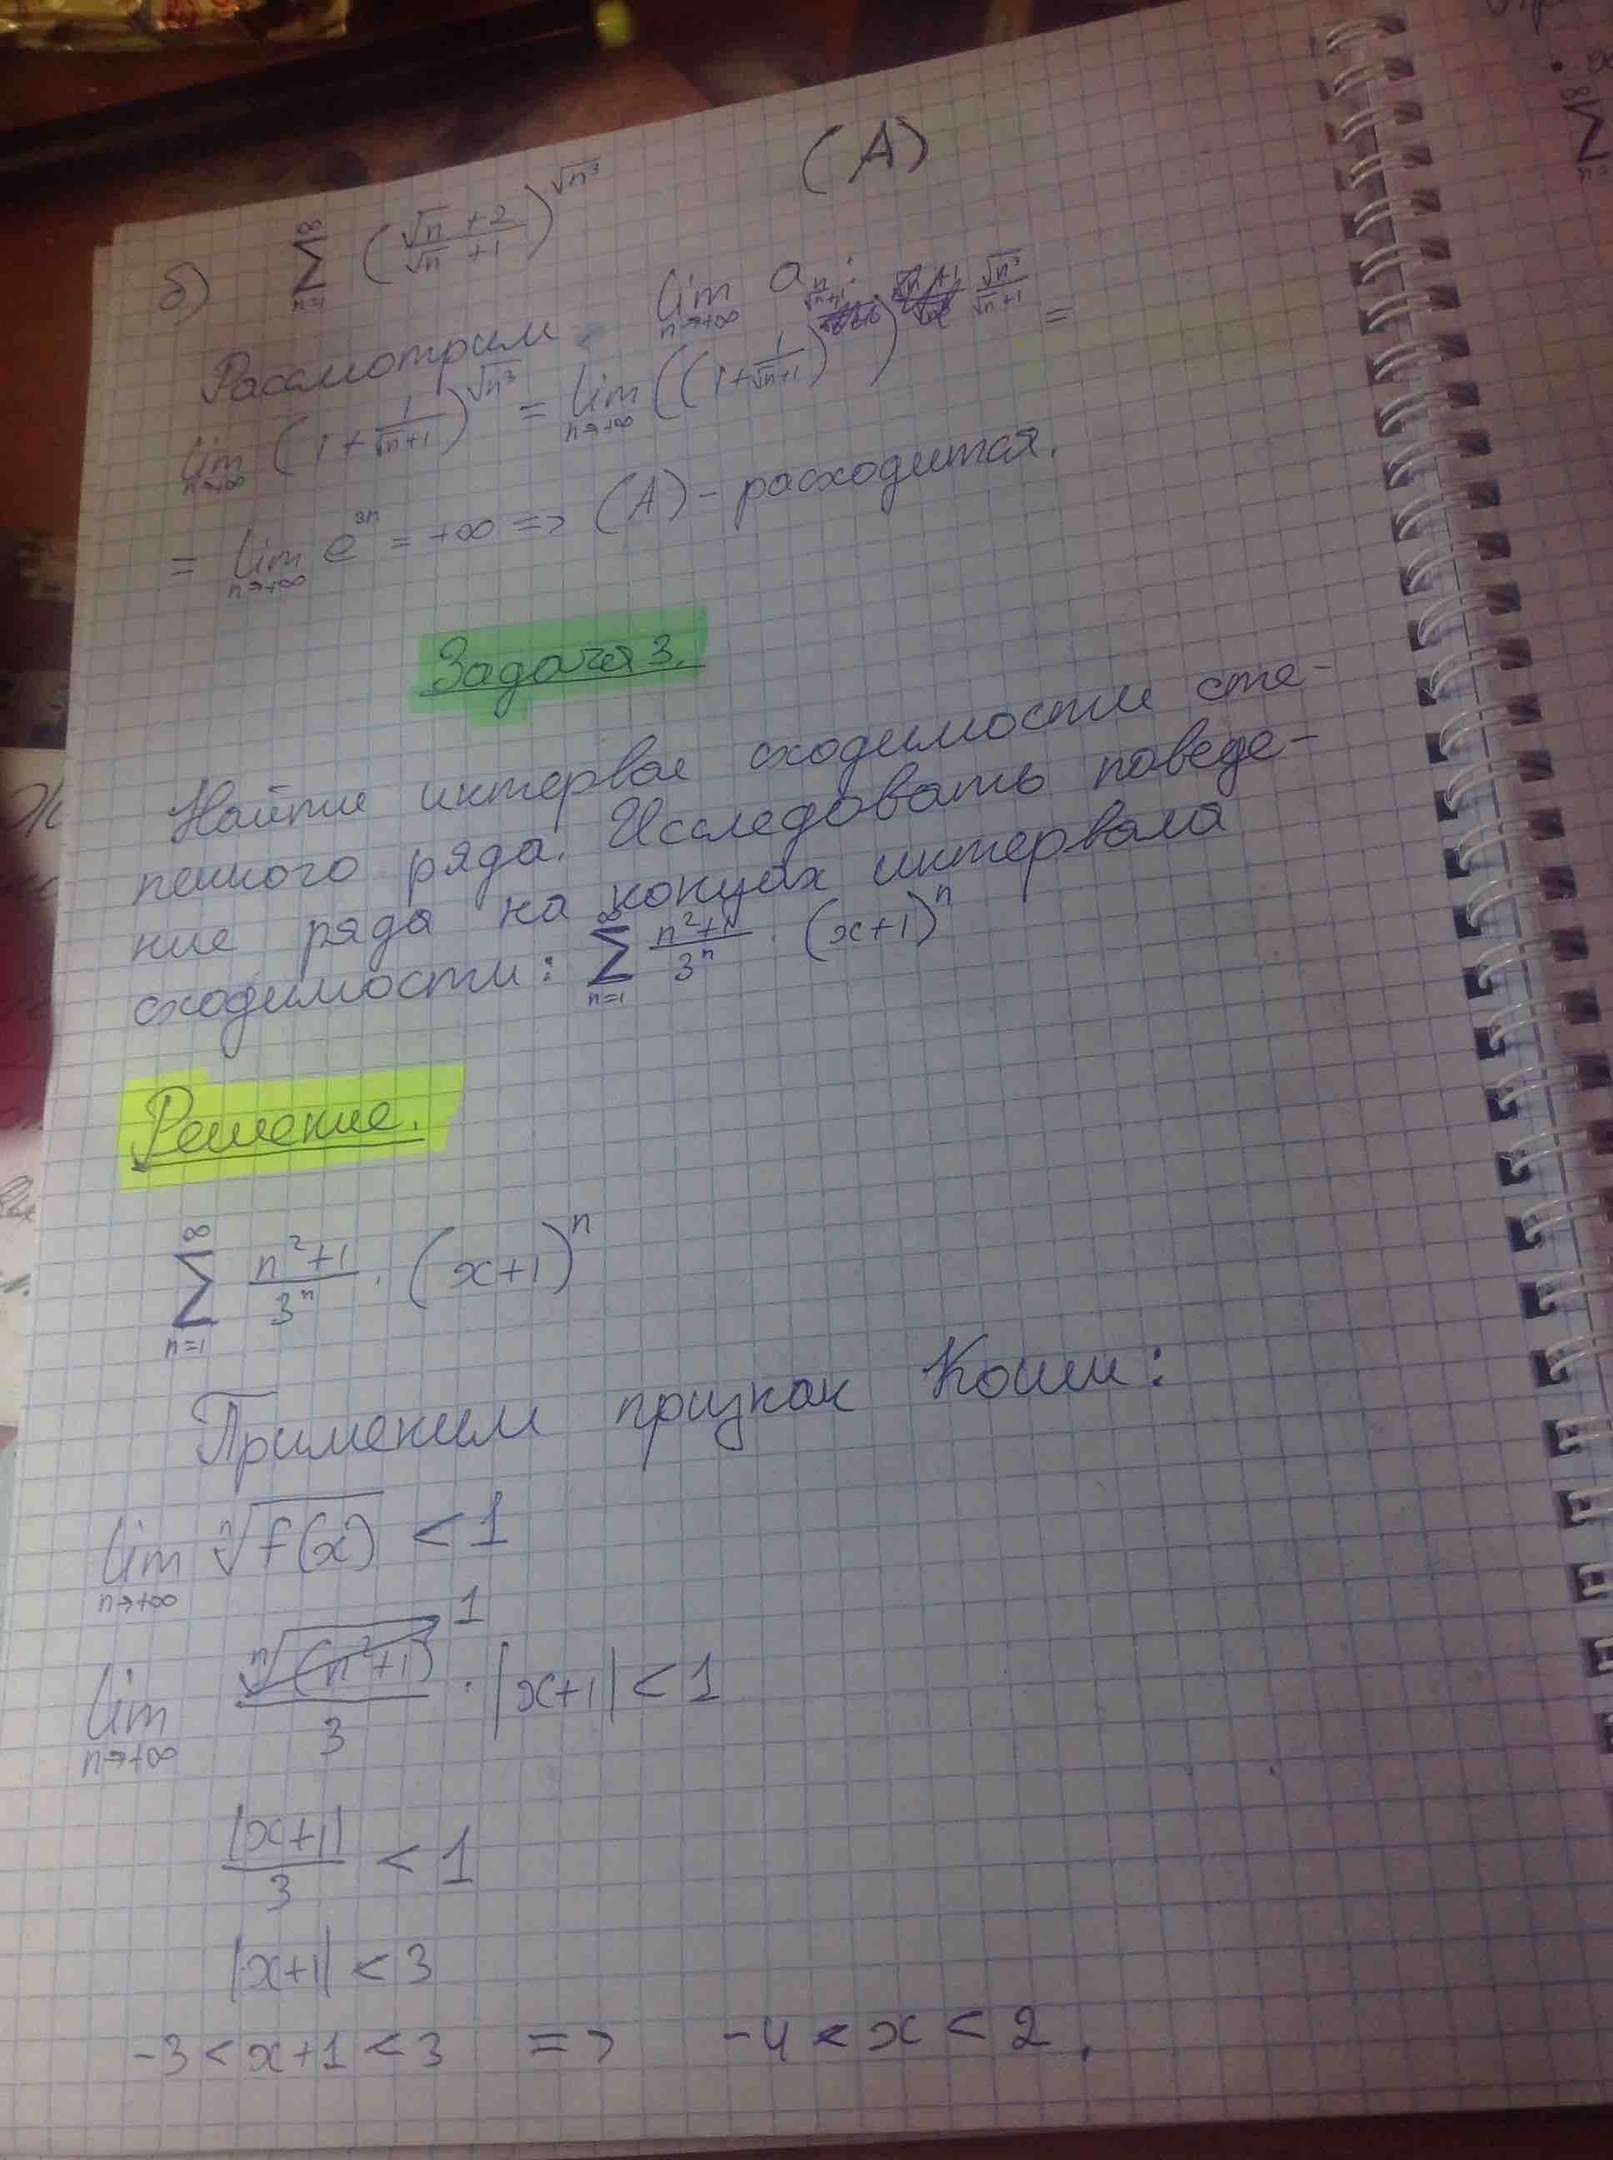 (A)
б) ∑_{n=1}^{∞} ((√n + 2)/(√n + 1))^{√n³}
Рассмотрим lim_{n→+∞} a_n:
lim_{n→+∞} (1 + 1/(√n+1))^{√n³} = lim_{n→+∞} ((1 + 1/(√n+1))^{√n+1})^{√n³/(√n+1)} =
= lim_{n→+∞} e^{3n} = +∞ => (A) - расходится.
Задача 3.
Найти интервал сходимости сте-
пенного ряда. Исследовать поведе-
ние ряда на концах интервала
сходимости: ∑_{n=1}^{∞} (n²+1)/3ⁿ · (x+1)ⁿ
Решение.
∑_{n=1}^{∞} (n²+1)/3ⁿ · (x+1)ⁿ
Применим признак Коши:
lim_{n→+∞} ⁿ√f(x) < 1
lim_{n→+∞} ⁿ√(n²+1) 1 / 3 · |x+1| < 1
|x+1|/3 < 1
|x+1| < 3
-3 < x+1 < 3 => -4 < x < 2.